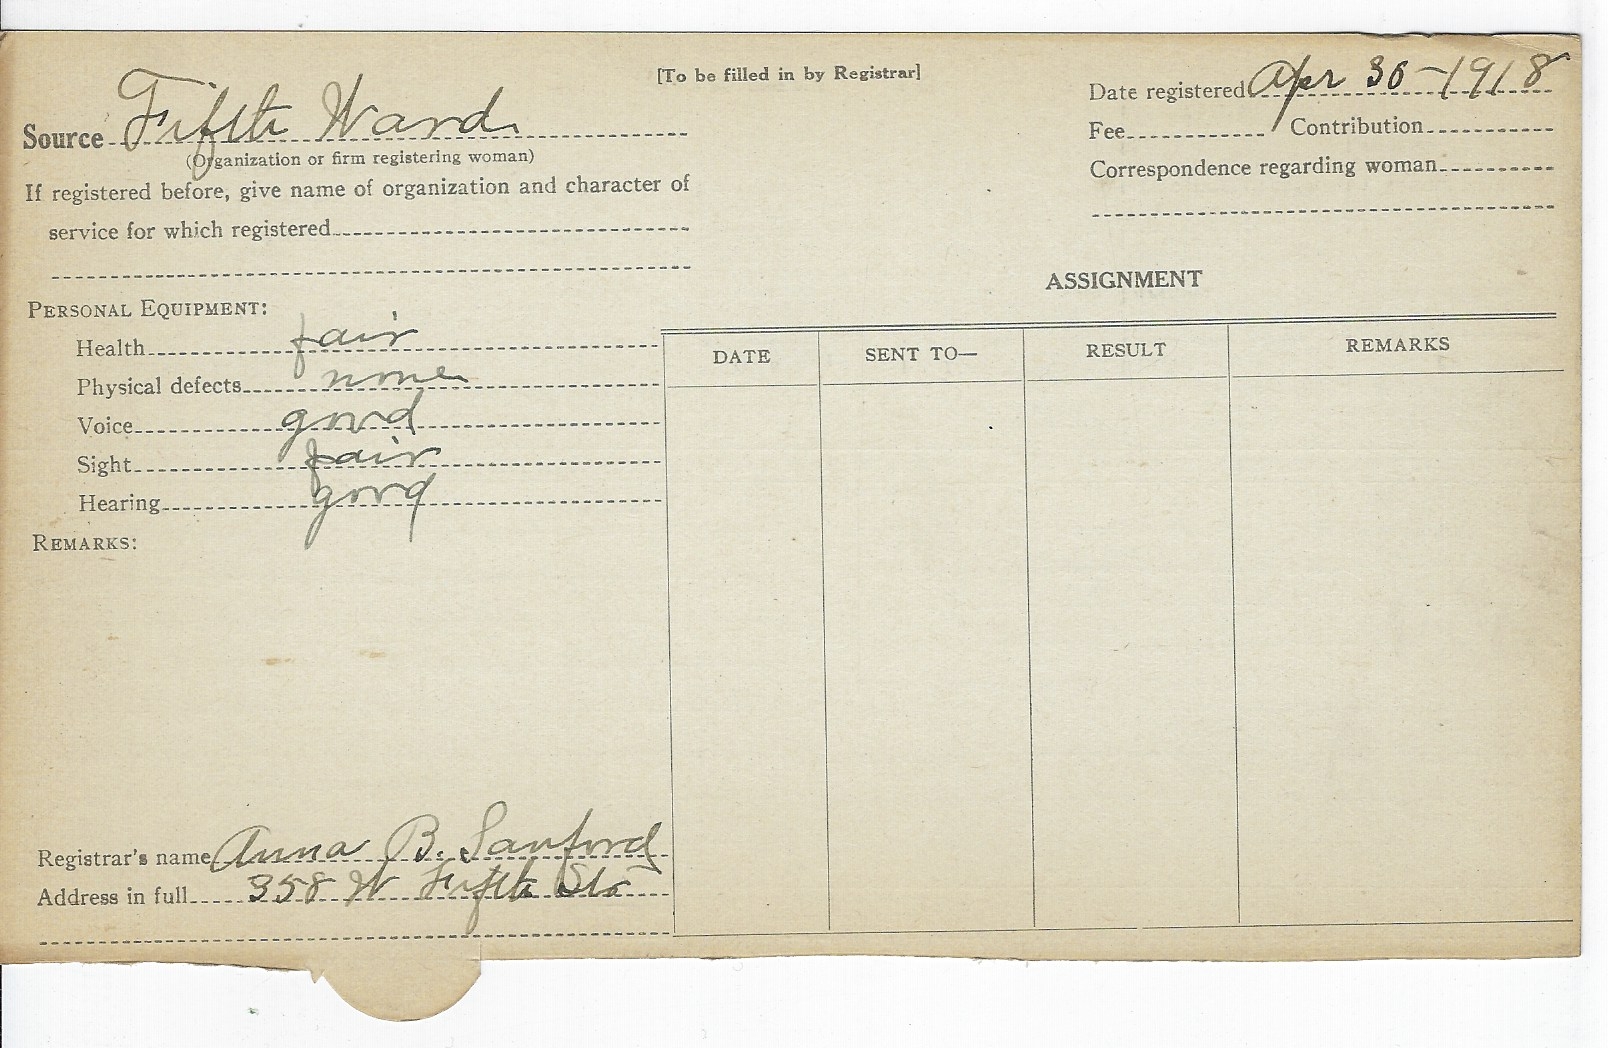 [To be filled in by Registrar]
Source Fifth Ward
(Organization or firm registering woman)
If registered before, give name of organization and character of
service for which registered
Date registered Apr 30 - 1918
Fee Contribution
Correspondence regarding woman
PERSONAL EQUIPMENT:
Health fair
Physical defects none
Voice good
Sight fair
Hearing good
REMARKS:
Registrar's name Anna B. Sanford
Address in full 358 W Fifth St.
ASSIGNMENT
DATE SENT TO— RESULT REMARKS